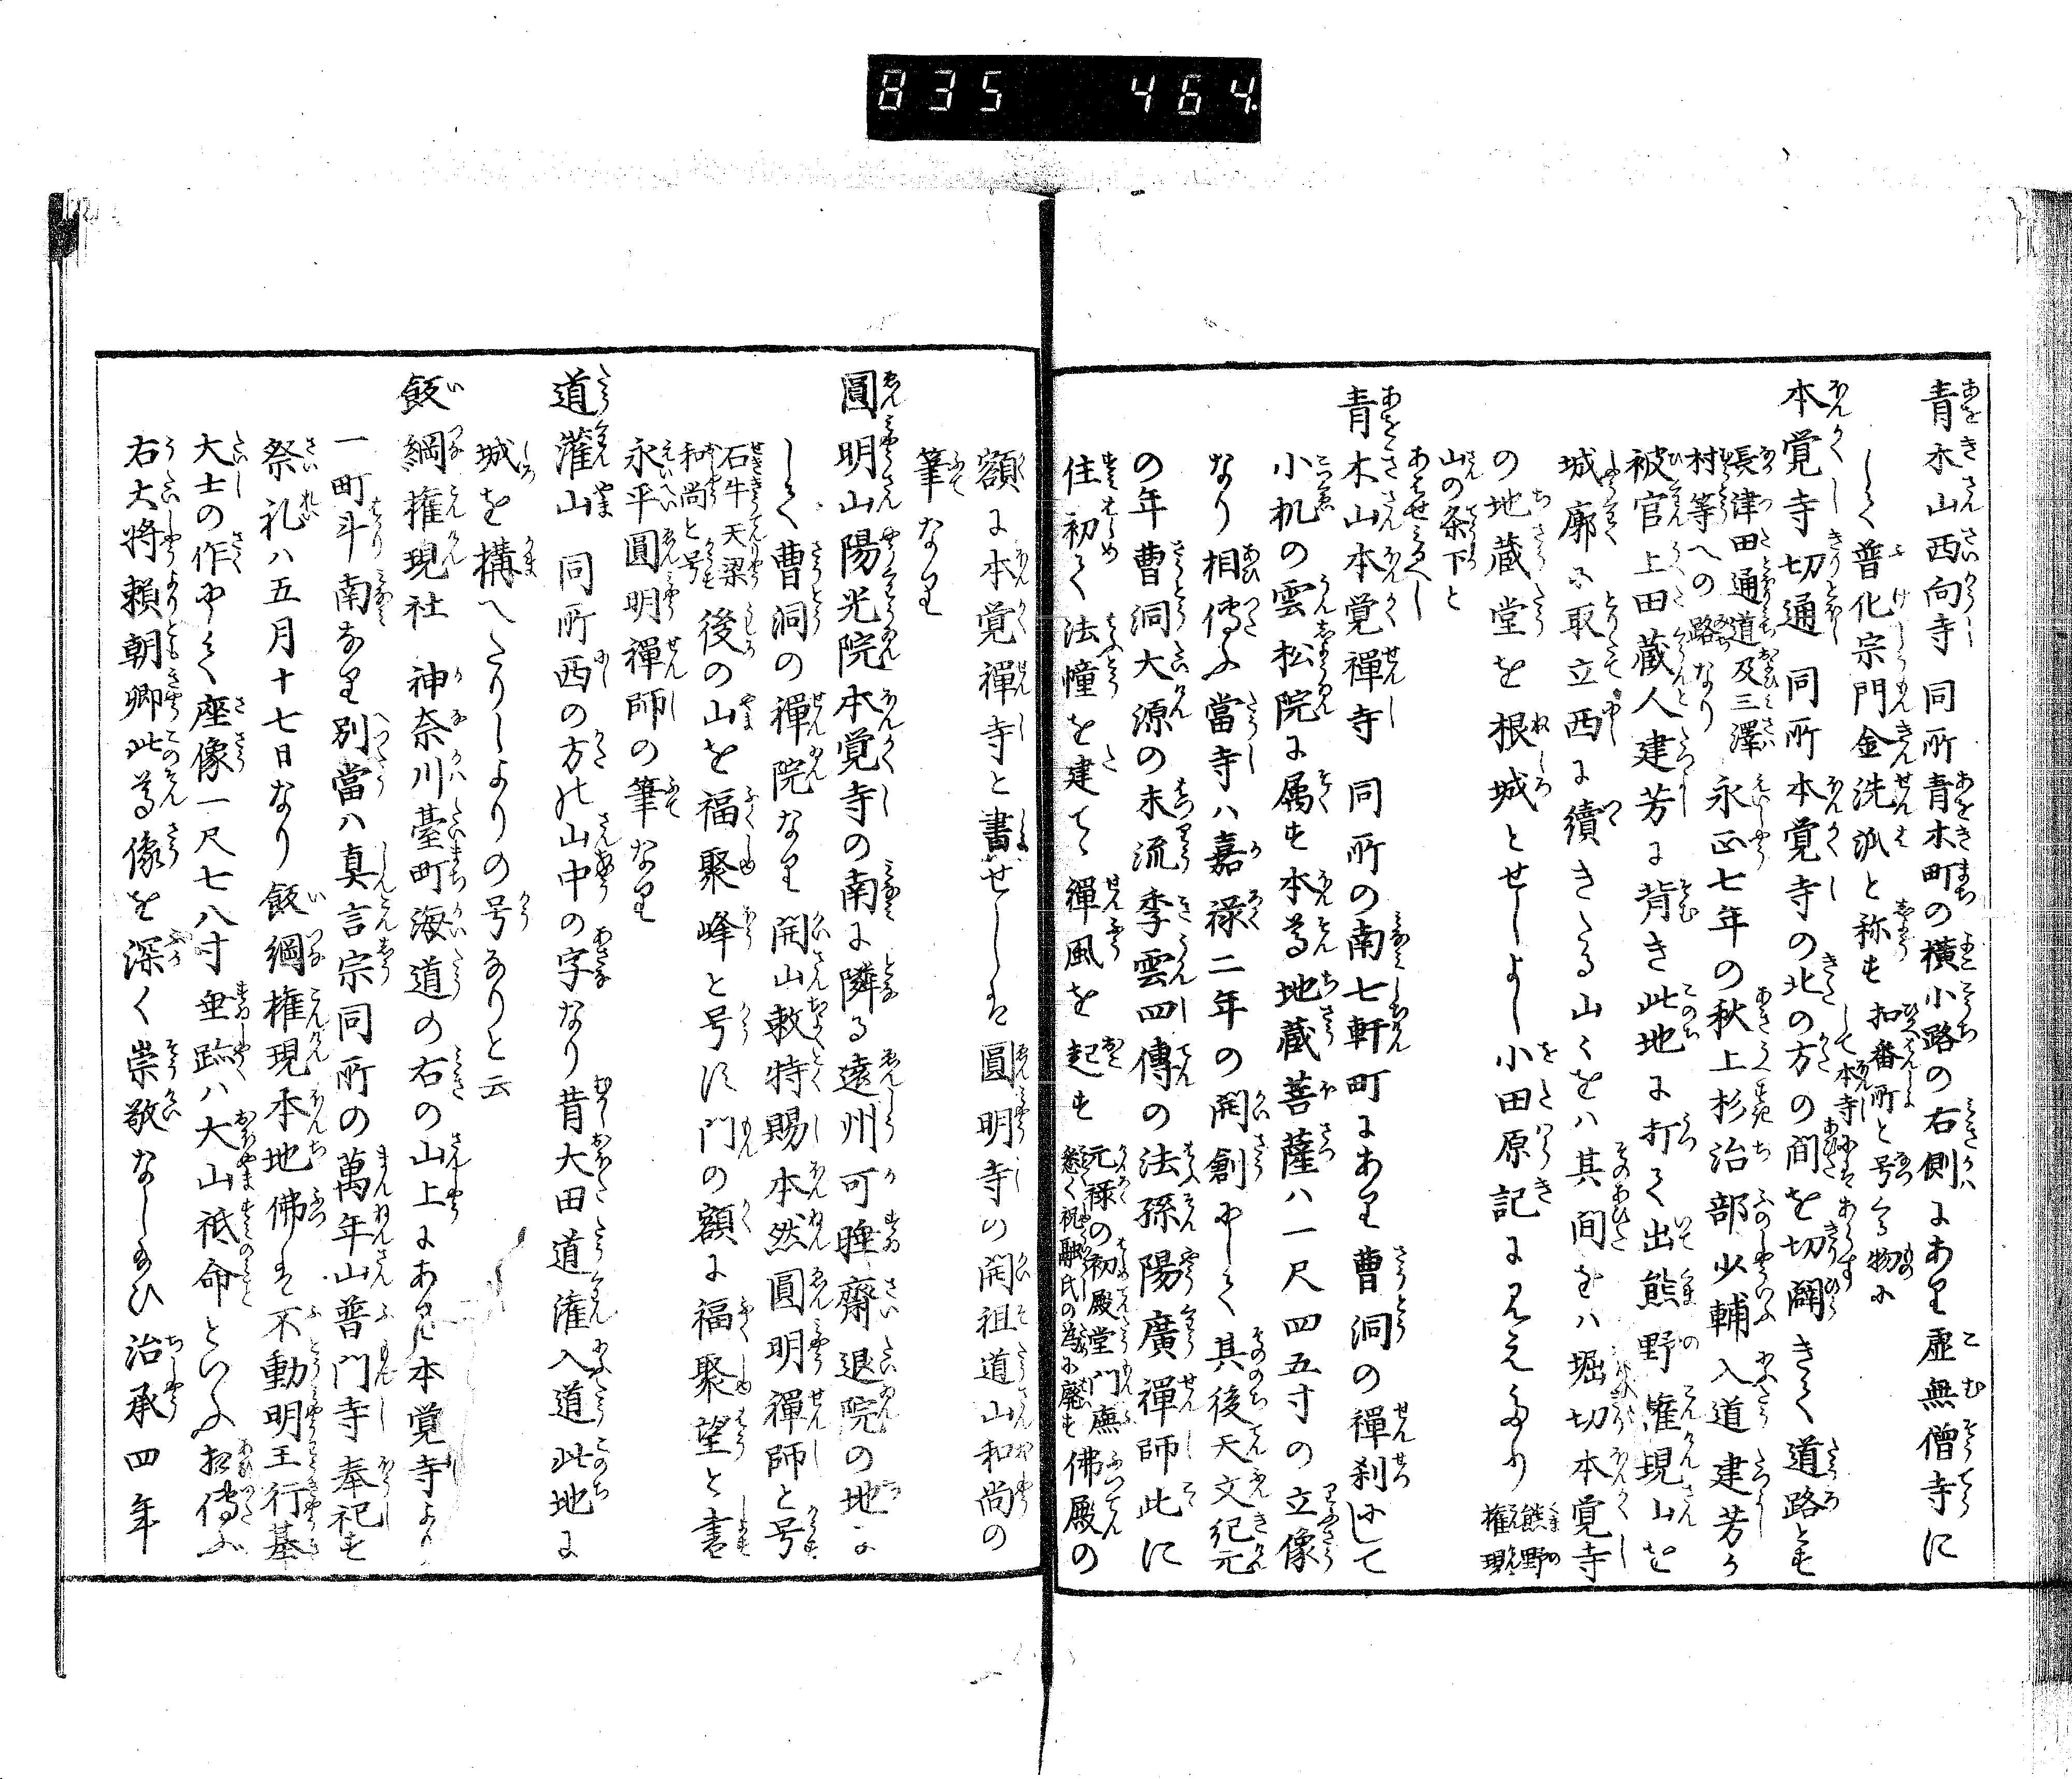 835 464
青木山西向寺 同所青木町の横小路の右側にあり虚無僧寺に
して普化宗門金洗派と称す 扣番所と号くる物にして本寺にはあらす
本覚寺切通 同所本覚寺の北の方の間を切闢きて道路とす
長津田通道及三澤村等への路なり 永正七年の秋上杉治部少輔入道建芳か
被官上田蔵人建芳に背き此地に打て出熊野権現山を
城廓に取立西に續きたる山々をは其間をは堀切本覚寺
の地蔵堂を根城とせしよし小田原記に見えたり 熊野権現
山の条下とあはせみるへし
青木山本覚禪寺 同所の南七軒町にあり曹洞の禪刹にして
小机の雲松院に属す本尊地蔵菩薩ハ一尺四五寸の立像
なり相傳ふ當寺ハ嘉禄二年の開創にして其後天文紀元
の年曹洞大源の末流季雲四傳の法孫陽廣禪師此に
住初て法幢を建て禪風を起す 元禄の初殿堂門廡悉く祝融氏の為に廃す 佛殿の
額に本覚禪寺と書せしは圓明寺の開祖道山和尚の
筆なり
圓明山陽光院 本覚寺の南に隣る遠州可睡齋退院の地に
して曹洞の禪院なり開山敕特賜本然圓明禪師と号
石牛天梁和尚と号 後の山を福聚峰と号に門の額に福聚望と書
永平圓明禪師の筆なり
道灌山 同所西の方の山中の字なり昔大田道灌入道此地に
城を構へたりしよりの号なりと云
飯綱権現社 神奈川臺町海道の右の山上にあり本覚寺より
一町斗南なり別當ハ真言宗同所の萬年山普門寺奉祀す
祭礼ハ五月十七日なり飯綱権現本地佛は不動明王行基
大士の作にして座像一尺七八寸垂跡ハ大山祗命といふ相傳ふ
右大将頼朝卿此尊像を深く崇敬なし給ひ治承四年